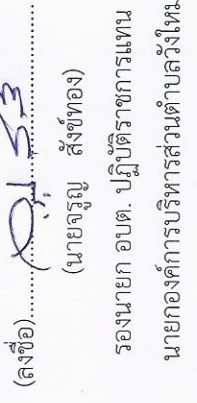 (ลงชื่อ)
(นายจรูญ สังข์ทอง)
รองนายก อบต. ปฏิบัติราชการแทน
นายกองค์การบริหารส่วนตำบลวังใหม่